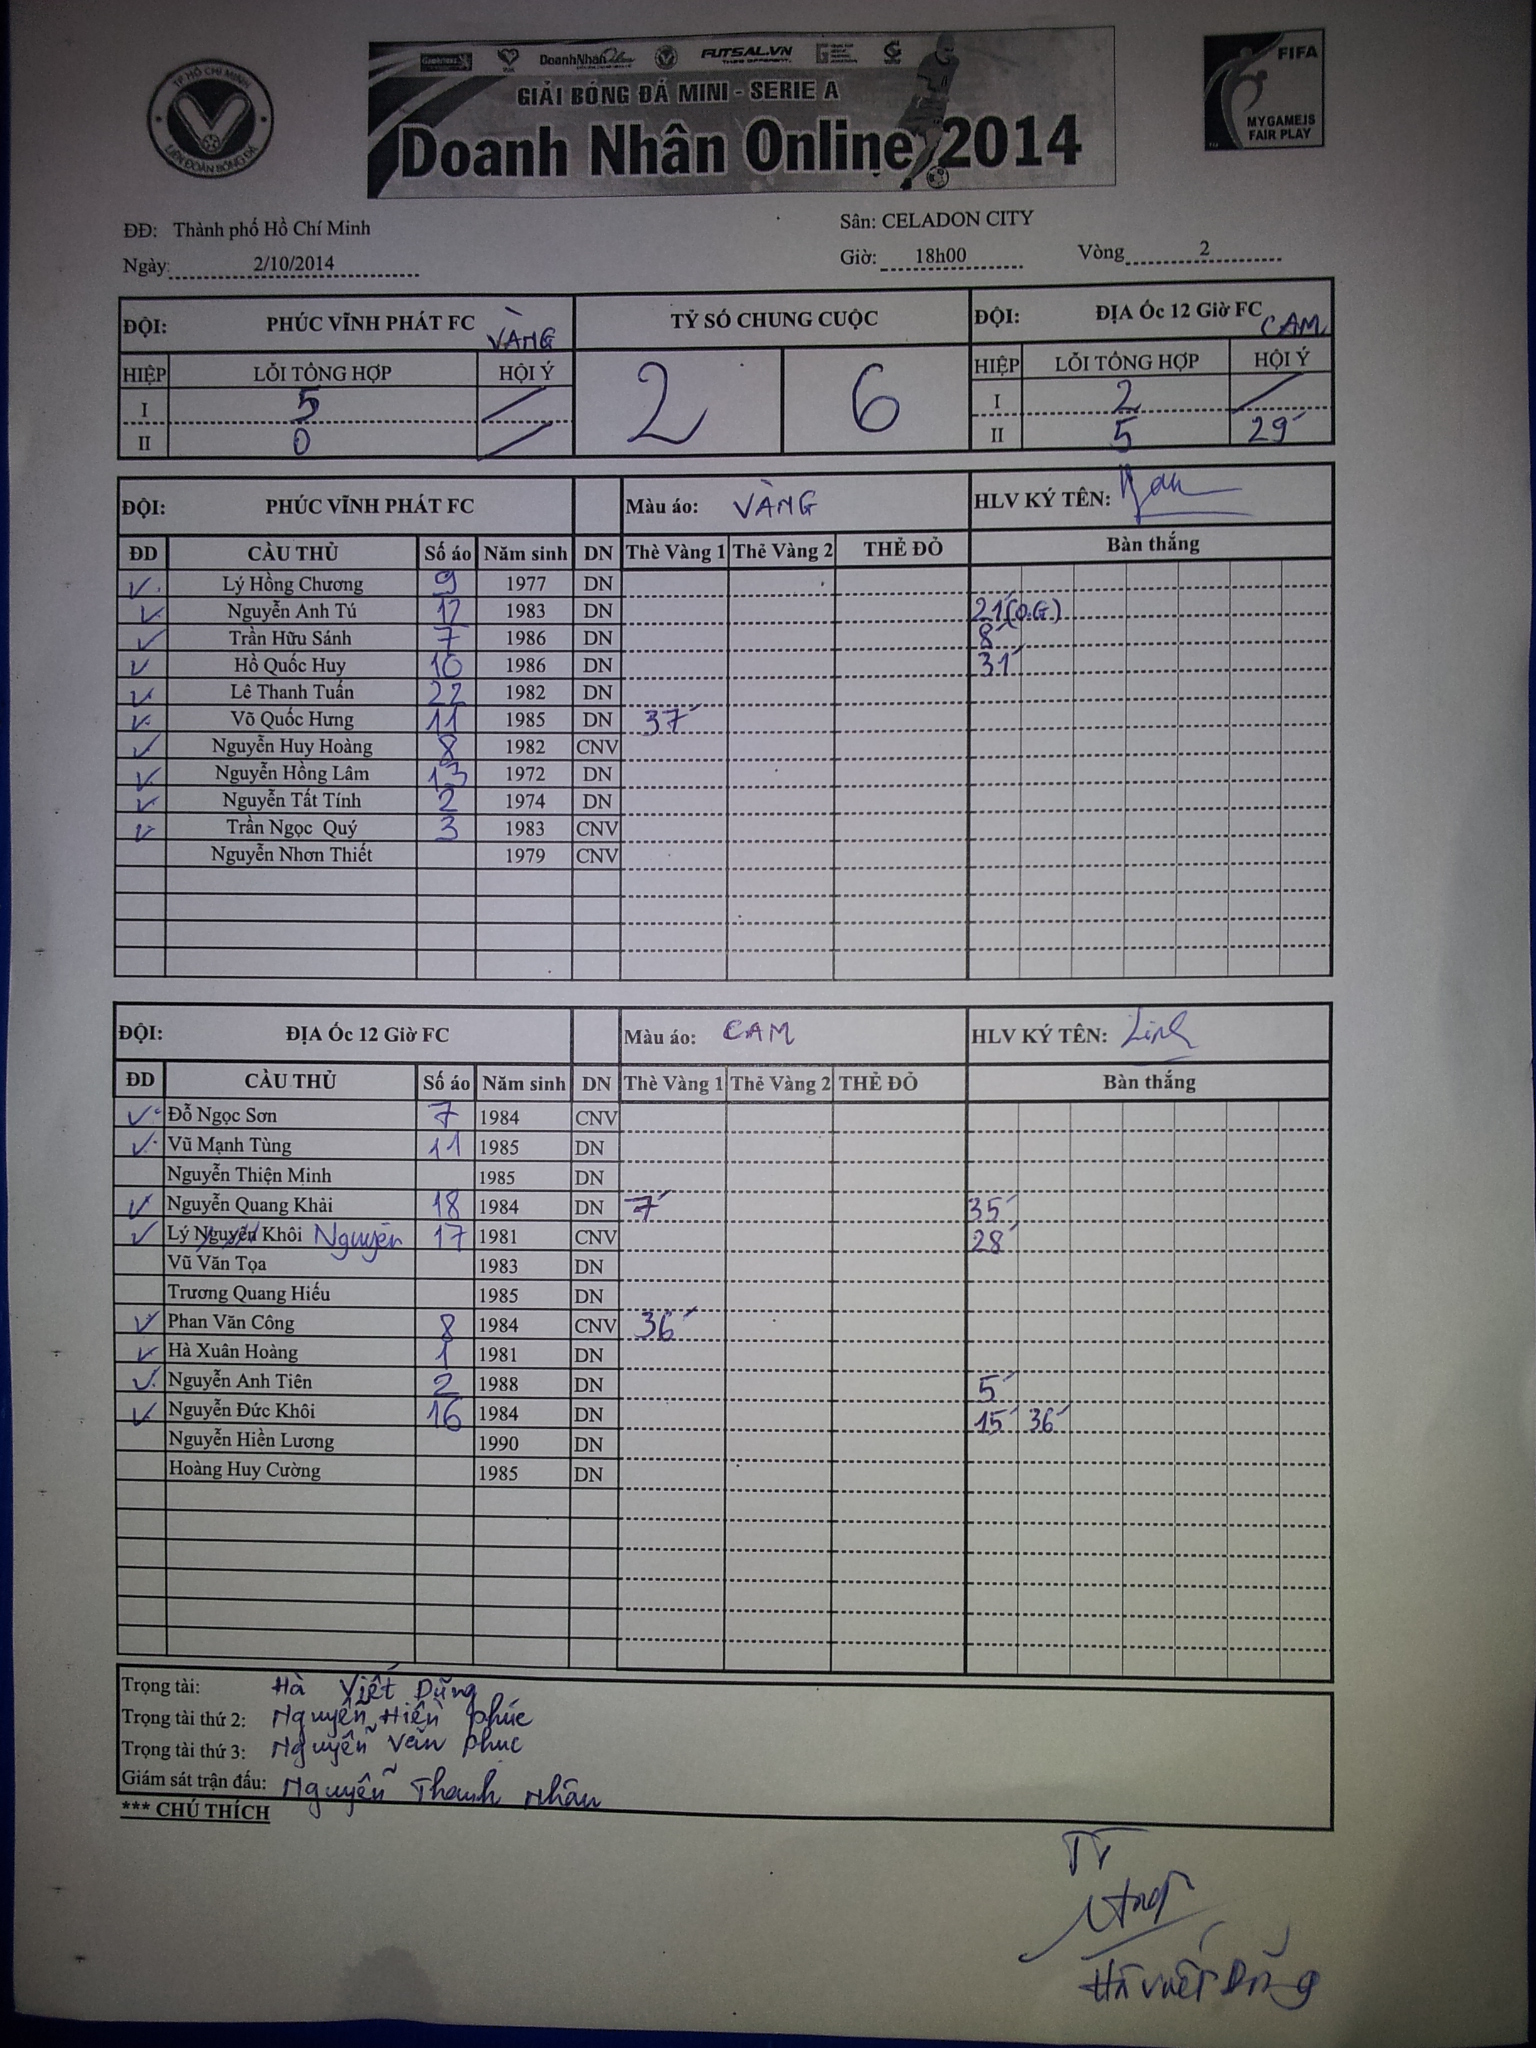 TP HỒ CHÍ MINH
LIÊN ĐOÀN BÓNG ĐÁ
DoanhNhân Online FUTSAL.VN
GIẢI BÓNG ĐÁ MINI - SERIE A
Doanh Nhân Online 2014
FIFA
MY GAME IS
FAIR PLAY
ĐĐ: Thành phố Hồ Chí Minh Sân: CELADON CITY
Ngày: 2/10/2014 Giờ: 18h00 Vòng 2
ĐỘI: PHÚC VĨNH PHÁT FC VÀNG TỶ SỐ CHUNG CUỘC ĐỘI: ĐỊA Ốc 12 Giờ FC CAM
HIỆP LỖI TỔNG HỢP HỘI Ý 2 6 HIỆP LỖI TỔNG HỢP HỘI Ý
I 5 / I 2 /
II 0 / II 5 29'
ĐỘI: PHÚC VĨNH PHÁT FC Màu áo: VÀNG HLV KÝ TÊN:
ĐD CẦU THỦ Số áo Năm sinh DN Thẻ Vàng 1 Thẻ Vàng 2 THẺ ĐỎ Bàn thắng
✓ Lý Hồng Chương 9 1977 DN
✓ Nguyễn Anh Tú 17 1983 DN 21'(O.G.)
✓ Trần Hữu Sánh 7 1986 DN 8'
✓ Hồ Quốc Huy 10 1986 DN 31'
✓ Lê Thanh Tuấn 22 1982 DN
✓ Võ Quốc Hưng 11 1985 DN 37'
✓ Nguyễn Huy Hoàng 8 1982 CNV
✓ Nguyễn Hồng Lâm 13 1972 DN
✓ Nguyễn Tất Tính 2 1974 DN
✓ Trần Ngọc Quý 3 1983 CNV
Nguyễn Nhơn Thiết 1979 CNV
ĐỘI: ĐỊA Ốc 12 Giờ FC Màu áo: CAM HLV KÝ TÊN: Linh
ĐD CẦU THỦ Số áo Năm sinh DN Thẻ Vàng 1 Thẻ Vàng 2 THẺ ĐỎ Bàn thắng
✓ Đỗ Ngọc Sơn 7 1984 CNV
✓ Vũ Mạnh Tùng 11 1985 DN
Nguyễn Thiện Minh 1985 DN
✓ Nguyễn Quang Khải 18 1984 DN 7' 35'
✓ Lý Nguyên Khôi Nguyên 17 1981 CNV 28'
Vũ Văn Tọa 1983 DN
Trương Quang Hiếu 1985 DN
✓ Phan Văn Công 8 1984 CNV 36'
✓ Hà Xuân Hoàng 1 1981 DN
✓ Nguyễn Anh Tiên 2 1988 DN 5'
✓ Nguyễn Đức Khôi 16 1984 DN 15' 36'
Nguyễn Hiền Lương 1990 DN
Hoàng Huy Cường 1985 DN
Trọng tài: Hà Viết Dũng
Trọng tài thứ 2: Nguyễn Hiền Phúc
Trọng tài thứ 3: Nguyễn Văn Phuc
Giám sát trận đấu: Nguyễn Thanh Nhân
*** CHÚ THÍCH
TT
Hà Viết Dũng